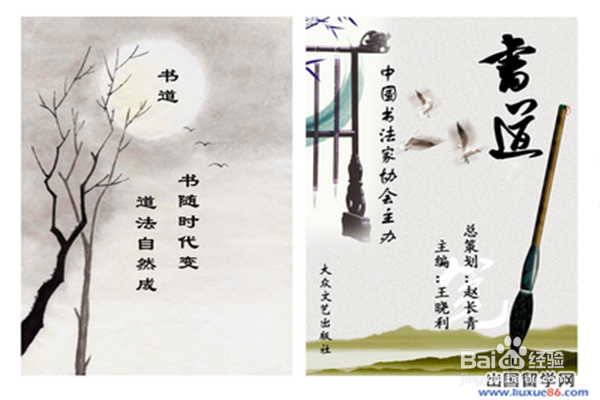 书道
书随时代变
道法自然成
書道
中国书法家协会主办
总策划：赵长青
主编：王晓利
大众文艺出版社
Baidu经验
jingyan.baidu.com
出国留学网
www.liuxue86.com